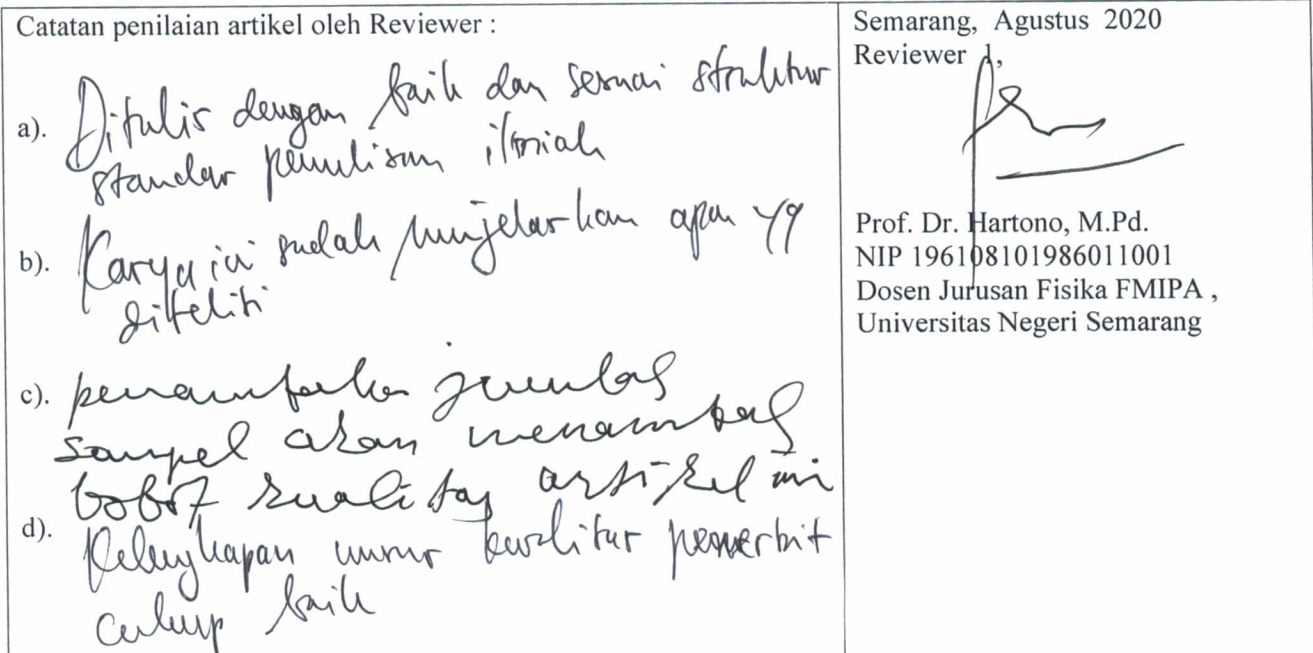 Catatan penilaian artikel oleh Reviewer :
a). Ditulis dengan baik dan sesuai struktur
standar penulisan ilmiah
b). Karya ini sudah menjelaskan apa yg
diteliti
c). penambahan jumlah
sampel akan menambah
bobot kualitas artikel ini
d). Kelengkapan unsur kualitas penerbit
cukup baik
Semarang, Agustus 2020
Reviewer 1,
Prof. Dr. Hartono, M.Pd.
NIP 196108101986011001
Dosen Jurusan Fisika FMIPA ,
Universitas Negeri Semarang